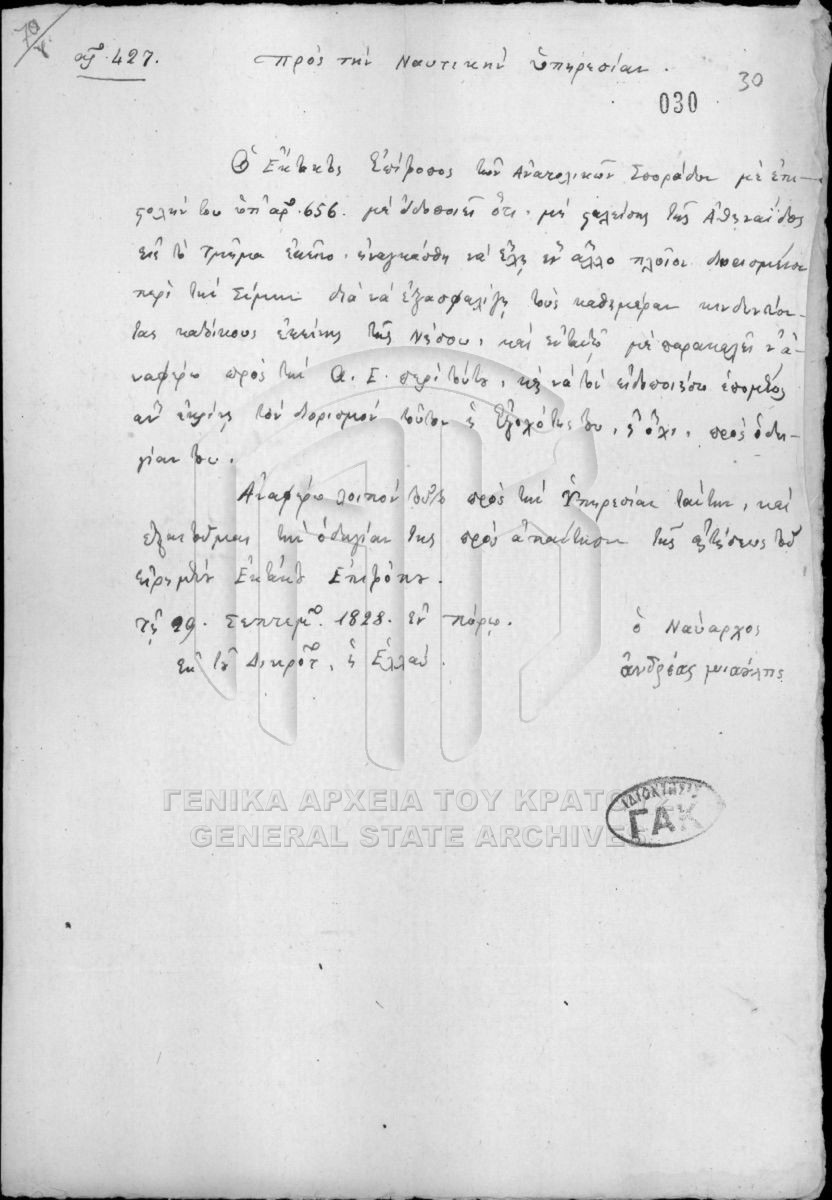 70
ἀρ. 427.
Πρὸς τὴν Ναυτικὴν ὑπηρεσίαν.
30
030
Ὁ Ἔκτακτος Ἐπίτροπος τῶν Ἀνατολικῶν Σποράδων μὲ ἐπι-
στολήν του ὑπ' ἀρ. 656. μὲ εἰδοποιεῖ ὅτι, μὴ σταλείσης τῆς Ἀθηναΐδος
εἰς τὸ τμῆμα ἐκεῖνο, ἠναγκάσθη νὰ ἓν ἄλλο πλοῖον διωρισμένον
περὶ τὴν Σύμην διὰ νὰ ἐξασφαλίζῃ τοὺς καθημέραν κινδυνεύον-
τας κατοίκους ἐκείνης τῆς Νήσου, καὶ ἐνταυτῷ μὲ παρακαλεῖ ν' ἀ-
ναφέρω πρὸς τὴν Α. Ε. περὶ τούτου, καὶ νὰ τὸν εἰδοποιήσω ἑπομένως
ἂν ἐκρίνῃ τὸν διορισμὸν τοῦτον ἡ Ἐξοχότης του, ἢ ὄχι, πρὸς ὁδη-
γίαν του.
Ἀναφέρω λοιπὸν τοῦτο πρὸς τὴν Ὑπηρεσίαν ταύτην, καὶ
ἐξαιτοῦμαι τὴν ὁδηγίαν της πρὸς ἀπάντησιν τῆς αἰτήσεως τοῦ
εἰρημένου Ἐκτάκτου Ἐπιτρόπου.
τῇ 29. Σεπτεμβρίου. 1828. ἐν Πόρῳ.
ἐκ τοῦ Δικρότου, ἡ Ἑλλάς.
ὁ Ναύαρχος
ἀνδρέας μιαούλης
ΓΕΝΙΚΑ ΑΡΧΕΙΑ ΤΟΥ ΚΡΑΤΟΥΣ
GENERAL STATE ARCHIVES
ΙΔΙΟΚΤΗΣΙΑ
ΓΑΚ